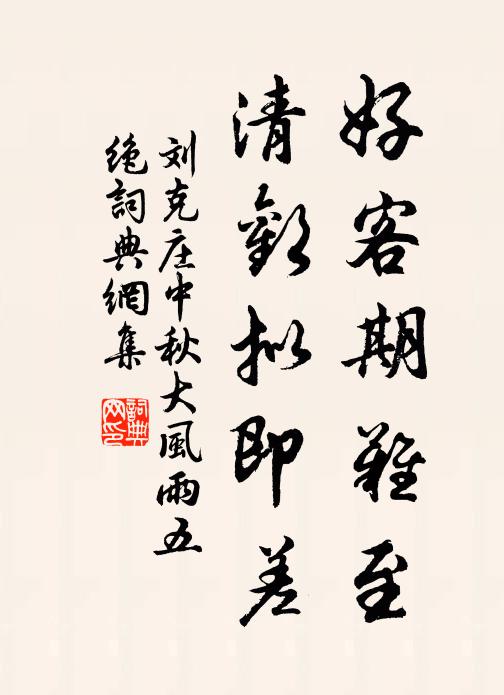 好客期難至
清歡拟即差
刘克庄中秋大風雨五
絶詞典網集
詞典
网印